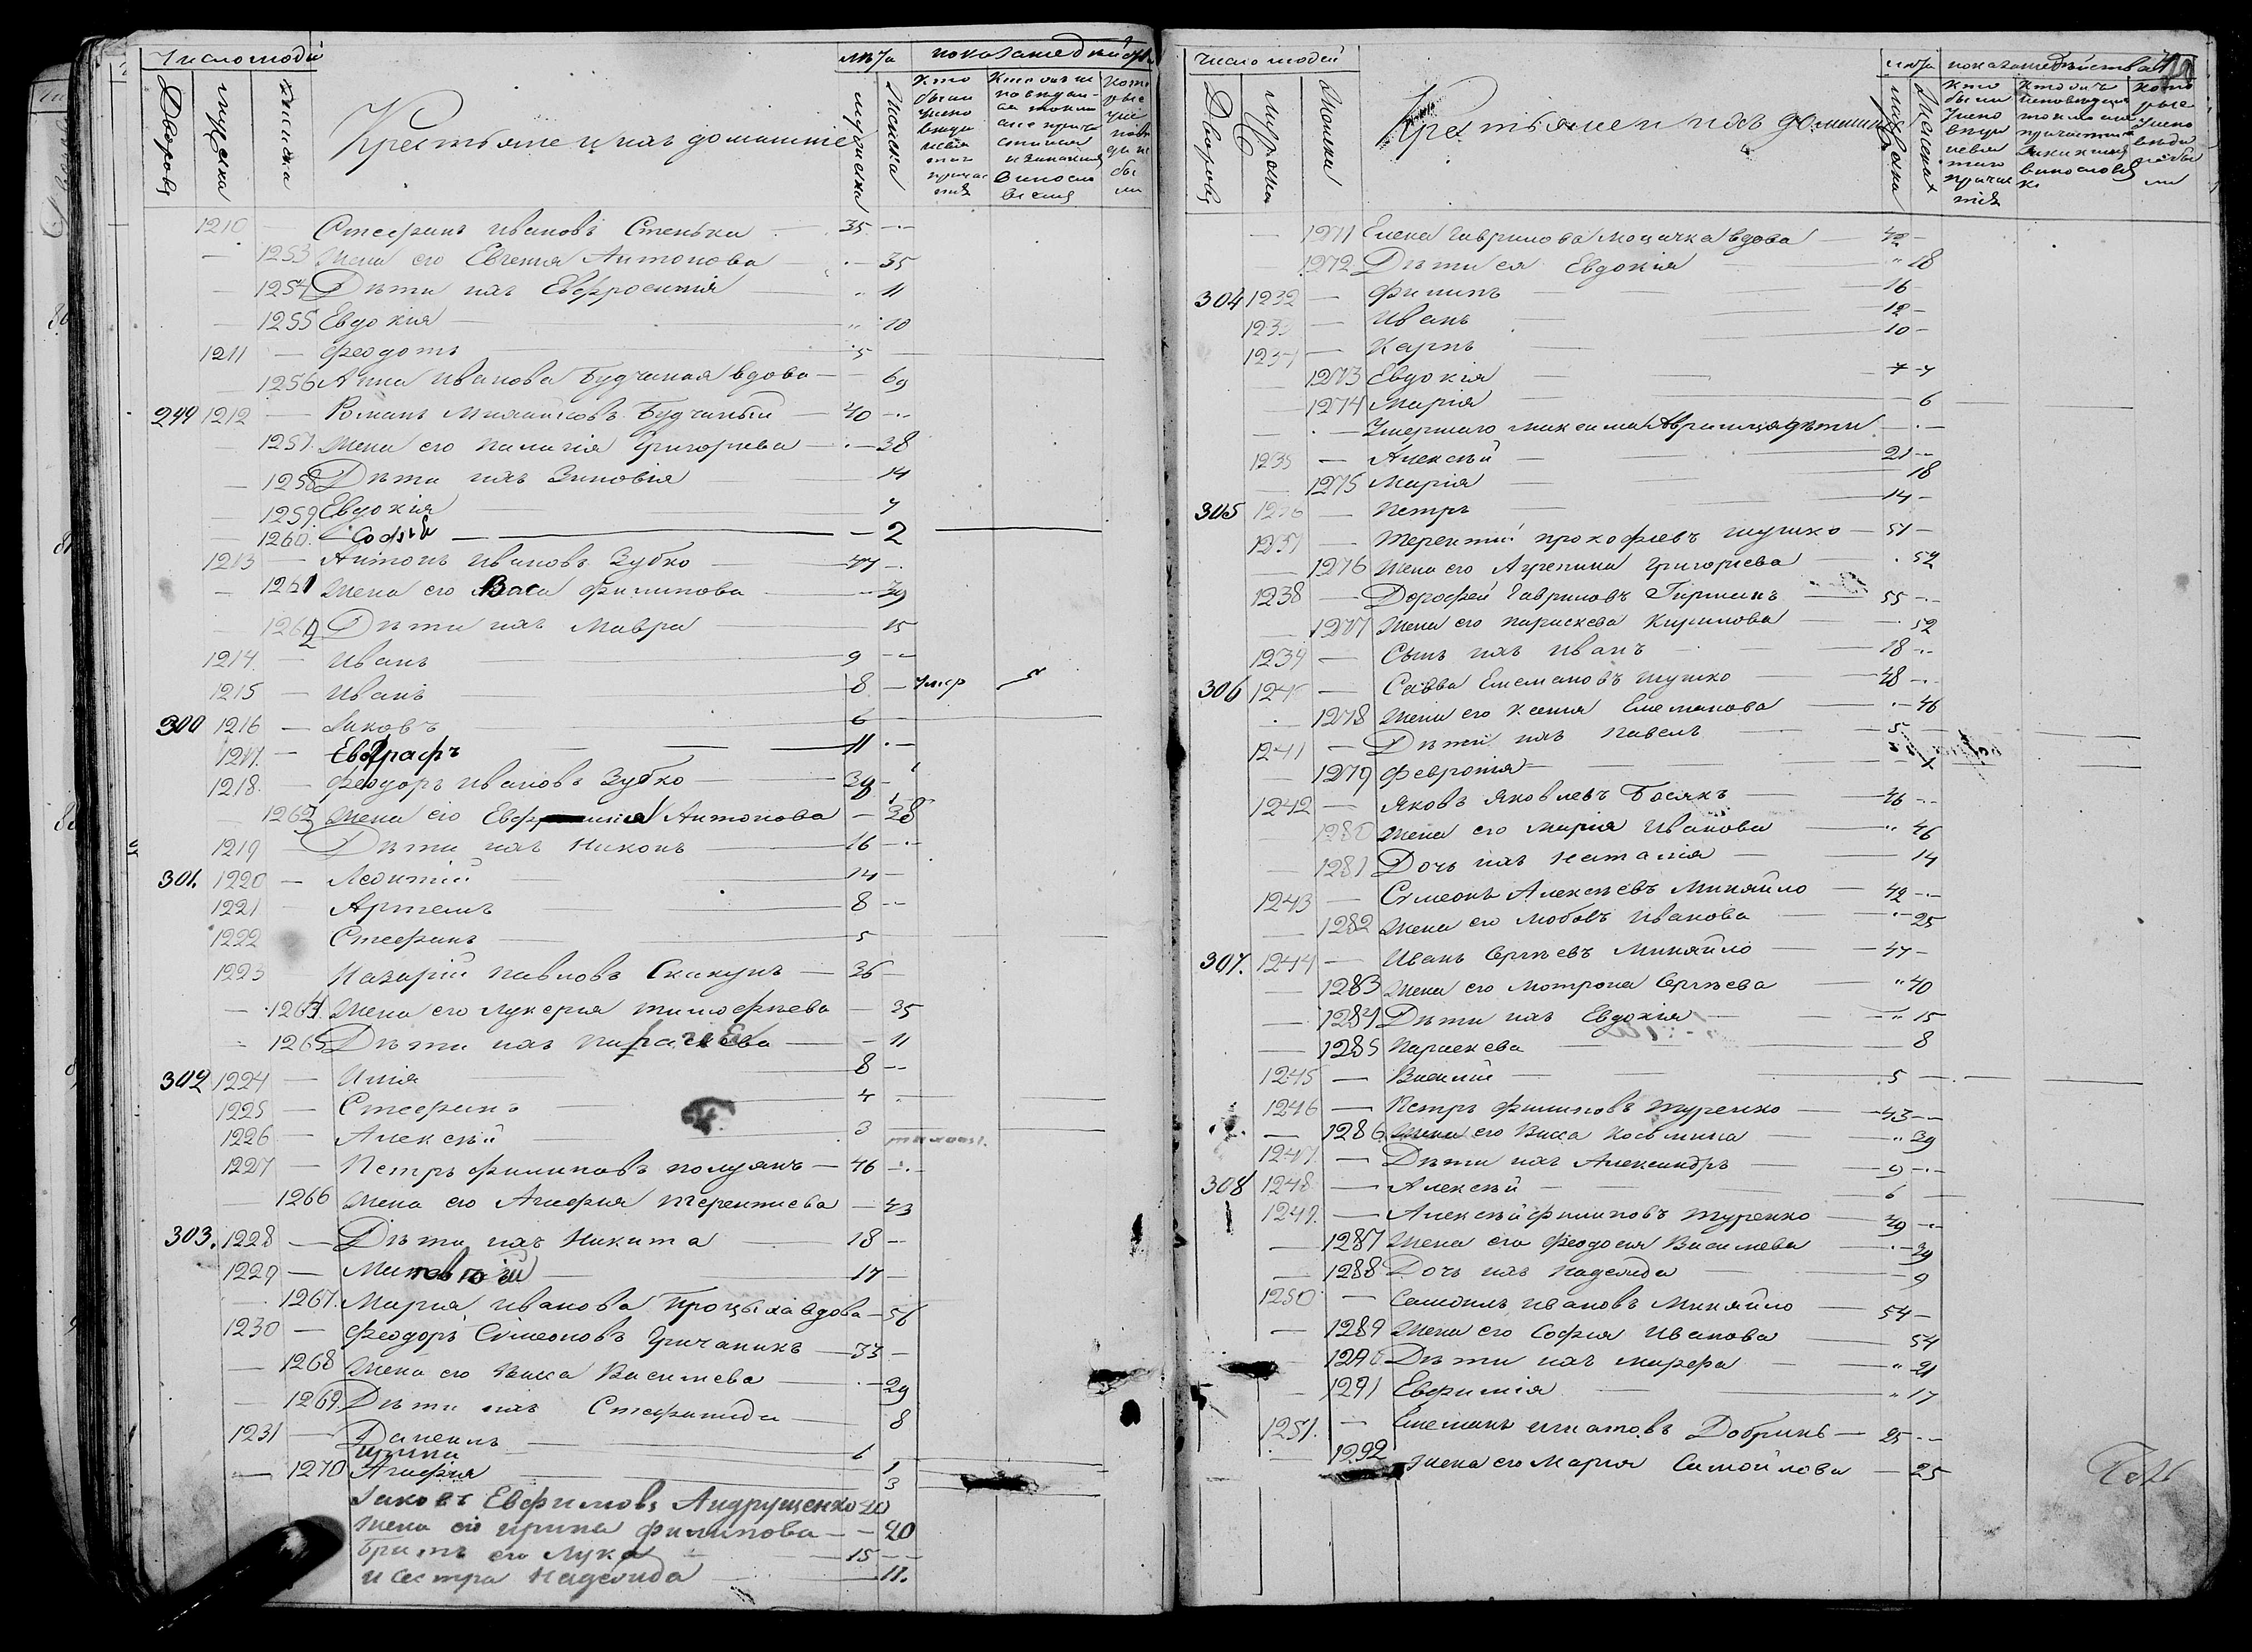 Число людей
лѣта
показание дѣйства
Дворовъ
мужеска
женска
Крестьяне и ихъ домашніе
мужеска
женска
1210 — Стефанъ Ивановъ Стенька — 35
1253 Жена его Евгенія Антонова — 35
1254 Дѣти ихъ Евфросинія — 11
1255 Евдокія — 10
1211 — Феодотъ — 5
1256 Анна Иванова вдова — 69
299 1212 — Романъ — 40
1257 Жена его Пелагія Григорьева — 38
1258 Дѣти ихъ Зиновія — 14
1259 Евдокія — 7
1260 Софія — 2
1213 — Антонъ Ивановъ Зубко — 44
1261 Жена его Васса Филипова — 39
1262 Дѣти ихъ Мавра — 15
1214 — Иванъ — 9
1215 — Иванъ — 8 — умер
300 1216 — Іаковъ — 6
1217 — Евграфъ — 11
1218 — Феодоръ Ивановъ Зубко — 39
1263 Жена его Антонова — 38
1219 — Дѣти ихъ Никонъ — 16
301 1220 — Леонтій — 14
1221 — Артемъ — 8
1222 Стефанъ — 5
1223 Назарій Павловъ Скакунъ — 36
1264 Жена его Лукерія Тимофѣева — 35
1265 Дѣти ихъ Параскева — 11
302 1224 — Илія — 8
1225 — Стефанъ — 4
1226 — Алексѣй — 3
1227 — Петръ Филиповъ Полуянъ — 46
1266 Жена его Агафія Терентіева — 43
303. 1228 — Дѣти ихъ Никита — 18
1229 — — 17
1267. Марія Иванова Процыха вдова — 56
1230 — Феодоръ Сѵмеоновъ Гричаникъ — 33
1268 Жена его Васса Василіева — 29
1269 Дѣти ихъ Стефанида — 8
1231 — Даніилъ — 6
Ирина — 1
1270 Агафія — 3
Іаковъ Евфимовъ Андрущенко 20
Жена его Ирина Филипова — 20
Братъ его Лука — 15
и сестра Надежда — 11.
Число людей
лѣта
показание дѣйства
Дворовъ
мужеска
женска
Крестьяне и ихъ домашніе
мужеска
женска
1271 Елена Гаврилова вдова — 42
1272 Дѣти ея Евдокія — 18
304 1232 — Филипъ — 16
1233 — Иванъ — 12
1234 — Карпъ — 10
1273 Евдокія — 7
1274 Марія — 6
Умершаго Максима дѣти
1235 — Алексѣй — 21
1275 Марія — 18
305 1236 — Петръ — 14
1237 — Терентій Прокофіевъ Шушко — 51
1276 Жена его Агрепина Григоріева — 52
1238 — Дорофей Гавриловъ — 55
1277 Жена его Параскева Кирилова — 52
1239 — Сынъ ихъ Иванъ — 18
306 1240 — Савва Емелановъ Шушко — 48
1278 Жена его Ксенія Емелянова — 46
1241 — Дѣти ихъ Павелъ — 5
1279 Февронія
1242 — Яковъ Яковлевъ Босякъ — 46
1280 Жена его Марія Иванова — 46
1281 Дочь ихъ Наталія — 14
1243 — Сѵмеонъ Алексѣевъ Михайло — 42
1282 Жена его Любовь Иванова — 25
307. 1244 — Иванъ Сергѣевъ Михайло — 47
1283 Жена его Мотрона Сергѣева — 40
1284 Дѣти ихъ Евдокія — 15
1285 Параскева — 8
1245 — Василій — 5
1246 — Петръ Филиповъ Туренко — 43
1286 Жена его Васса Косьмина — 39
1247 — Дѣти ихъ Александръ — 9
308 1248 — Алексѣй — 6
1249 — Алексѣй Филиповъ Туренко — 39
1287 Жена его Феодосія Василіева — 39
1288 Дочь ихъ Надежда — 9
1250 — Самоилъ Ивановъ Михайло — 54
1289 Жена его Софія Иванова — 54
1290 Дѣти ихъ Марфа — 21
1291 Евфимія — 17
1251. — Емеліанъ Игнатовъ — 25
1292 Жена его Марія Самойлова — 25